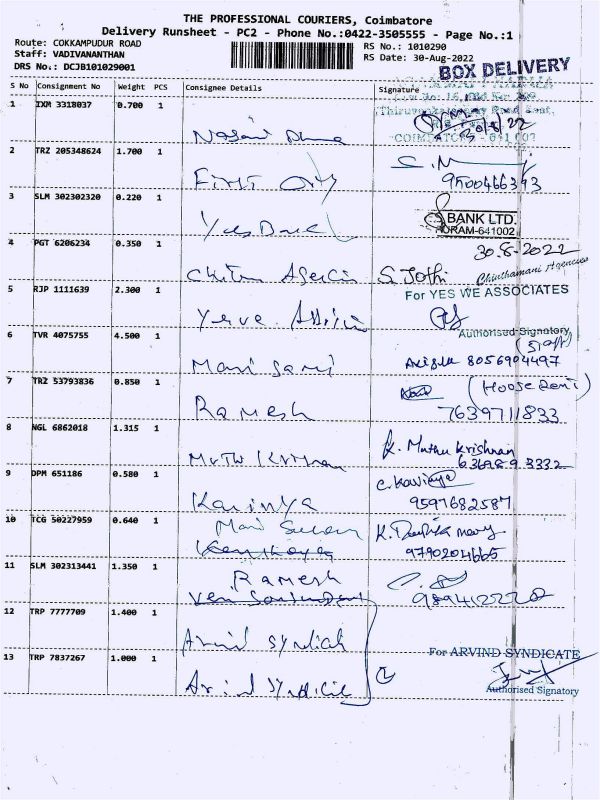 THE PROFESSIONAL COURIERS, Coimbatore
Delivery Runsheet - PC2 - Phone No.:0422-3505555 - Page No.:1
Route: COKKAMPUDUR ROAD
Staff: VADIVANANTHAN
DRS No.: DCJB101029001
RS No.: 1010290
RS Date: 30-Aug-2022
BOX DELIVERY
S No Consignment No Weight PCS Consignee Details Signature
1 IXM 3318037 0.700 1
30/8/22
COIMBATORE - 641 002
2 TRZ 205348624 1.700 1
First City
9500466393
3 SLM 302302320 0.220 1
Yes Bank
BANK LTD.
PURAM-641002
30.8.2022
4 PGT 6206234 0.350 1
S. Jothi Chinthamani Agencies
5 RJP 1111639 2.300 1
For YES WE ASSOCIATES
Authorised Signatory
(Staff)
6 TVR 4075755 4.500 1
Mani Sami
8056904497
7 TRZ 53793836 0.850 1
Ramesh
7639711833
8 NGL 6862018 1.315 1
Muthu Krishnan
K. Muthu Krishnan
636989 3332
9 DPM 651186 0.580 1
Kavinya
C. Kaviya
9597682587
10 TCG 50227959 0.640 1
Mani
K. Deepika mary
9790204665
11 SLM 302313441 1.350 1
Ramesh
12 TRP 7777709 1.400 1
Arvind Syndicate
13 TRP 7837267 1.000 1
Arvind Syndicate
For ARVIND SYNDICATE
Authorised Signatory